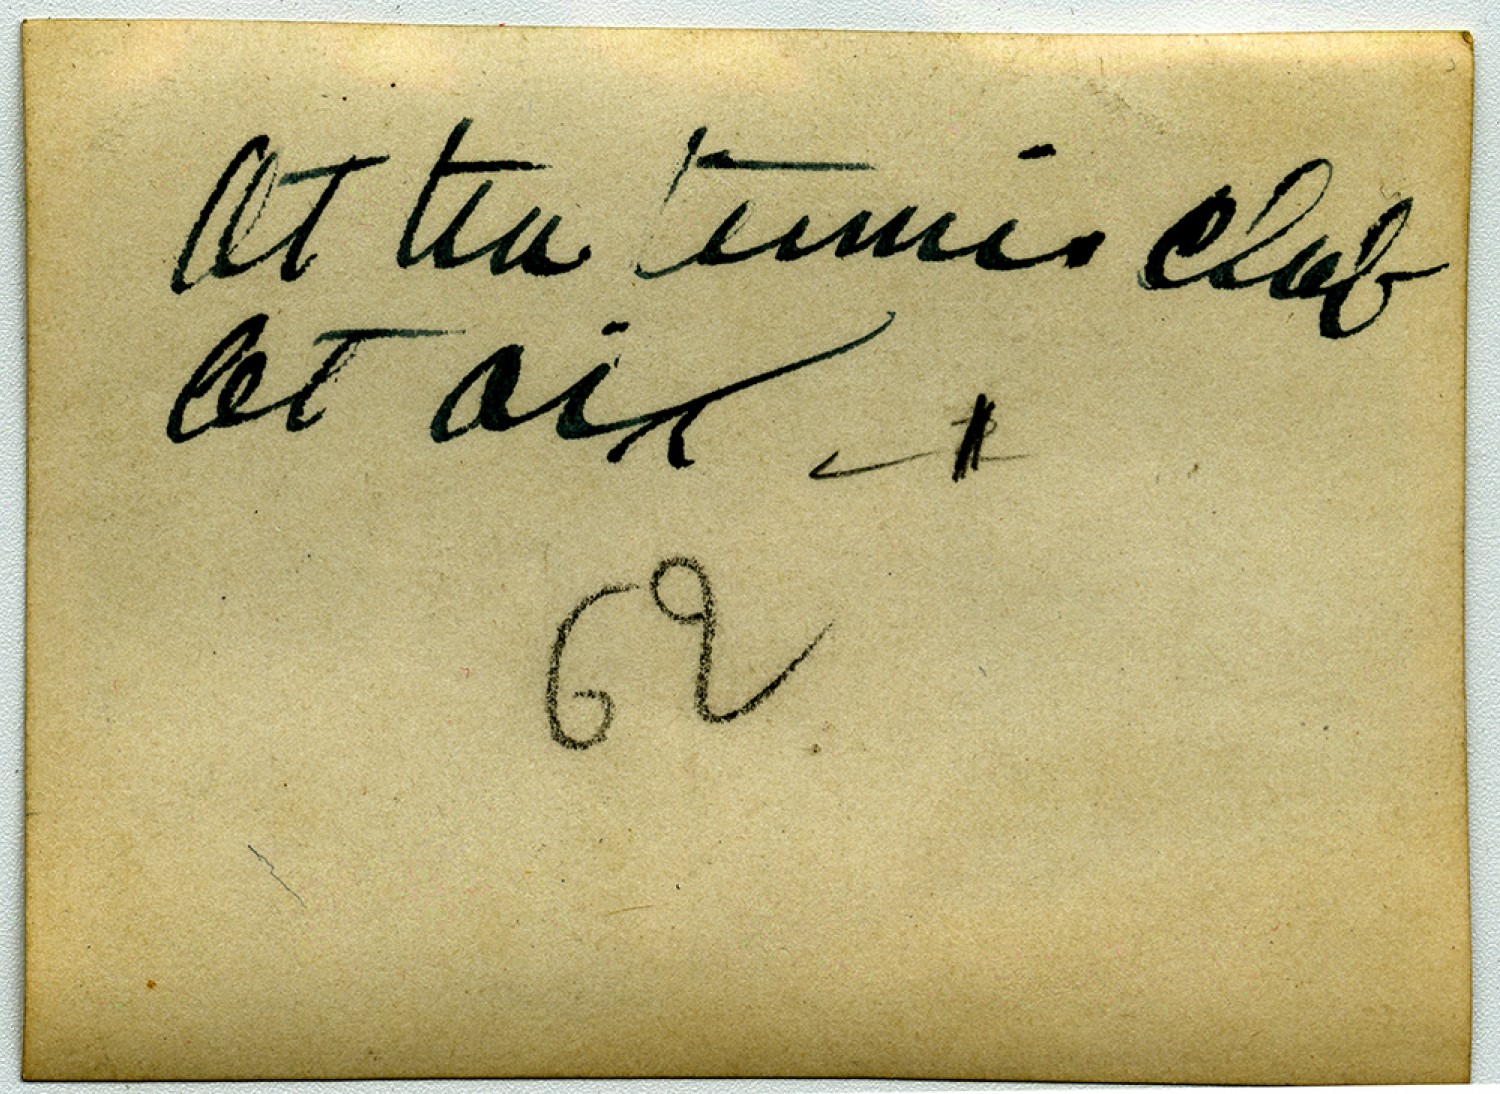 At the tennis club
At Aix
62